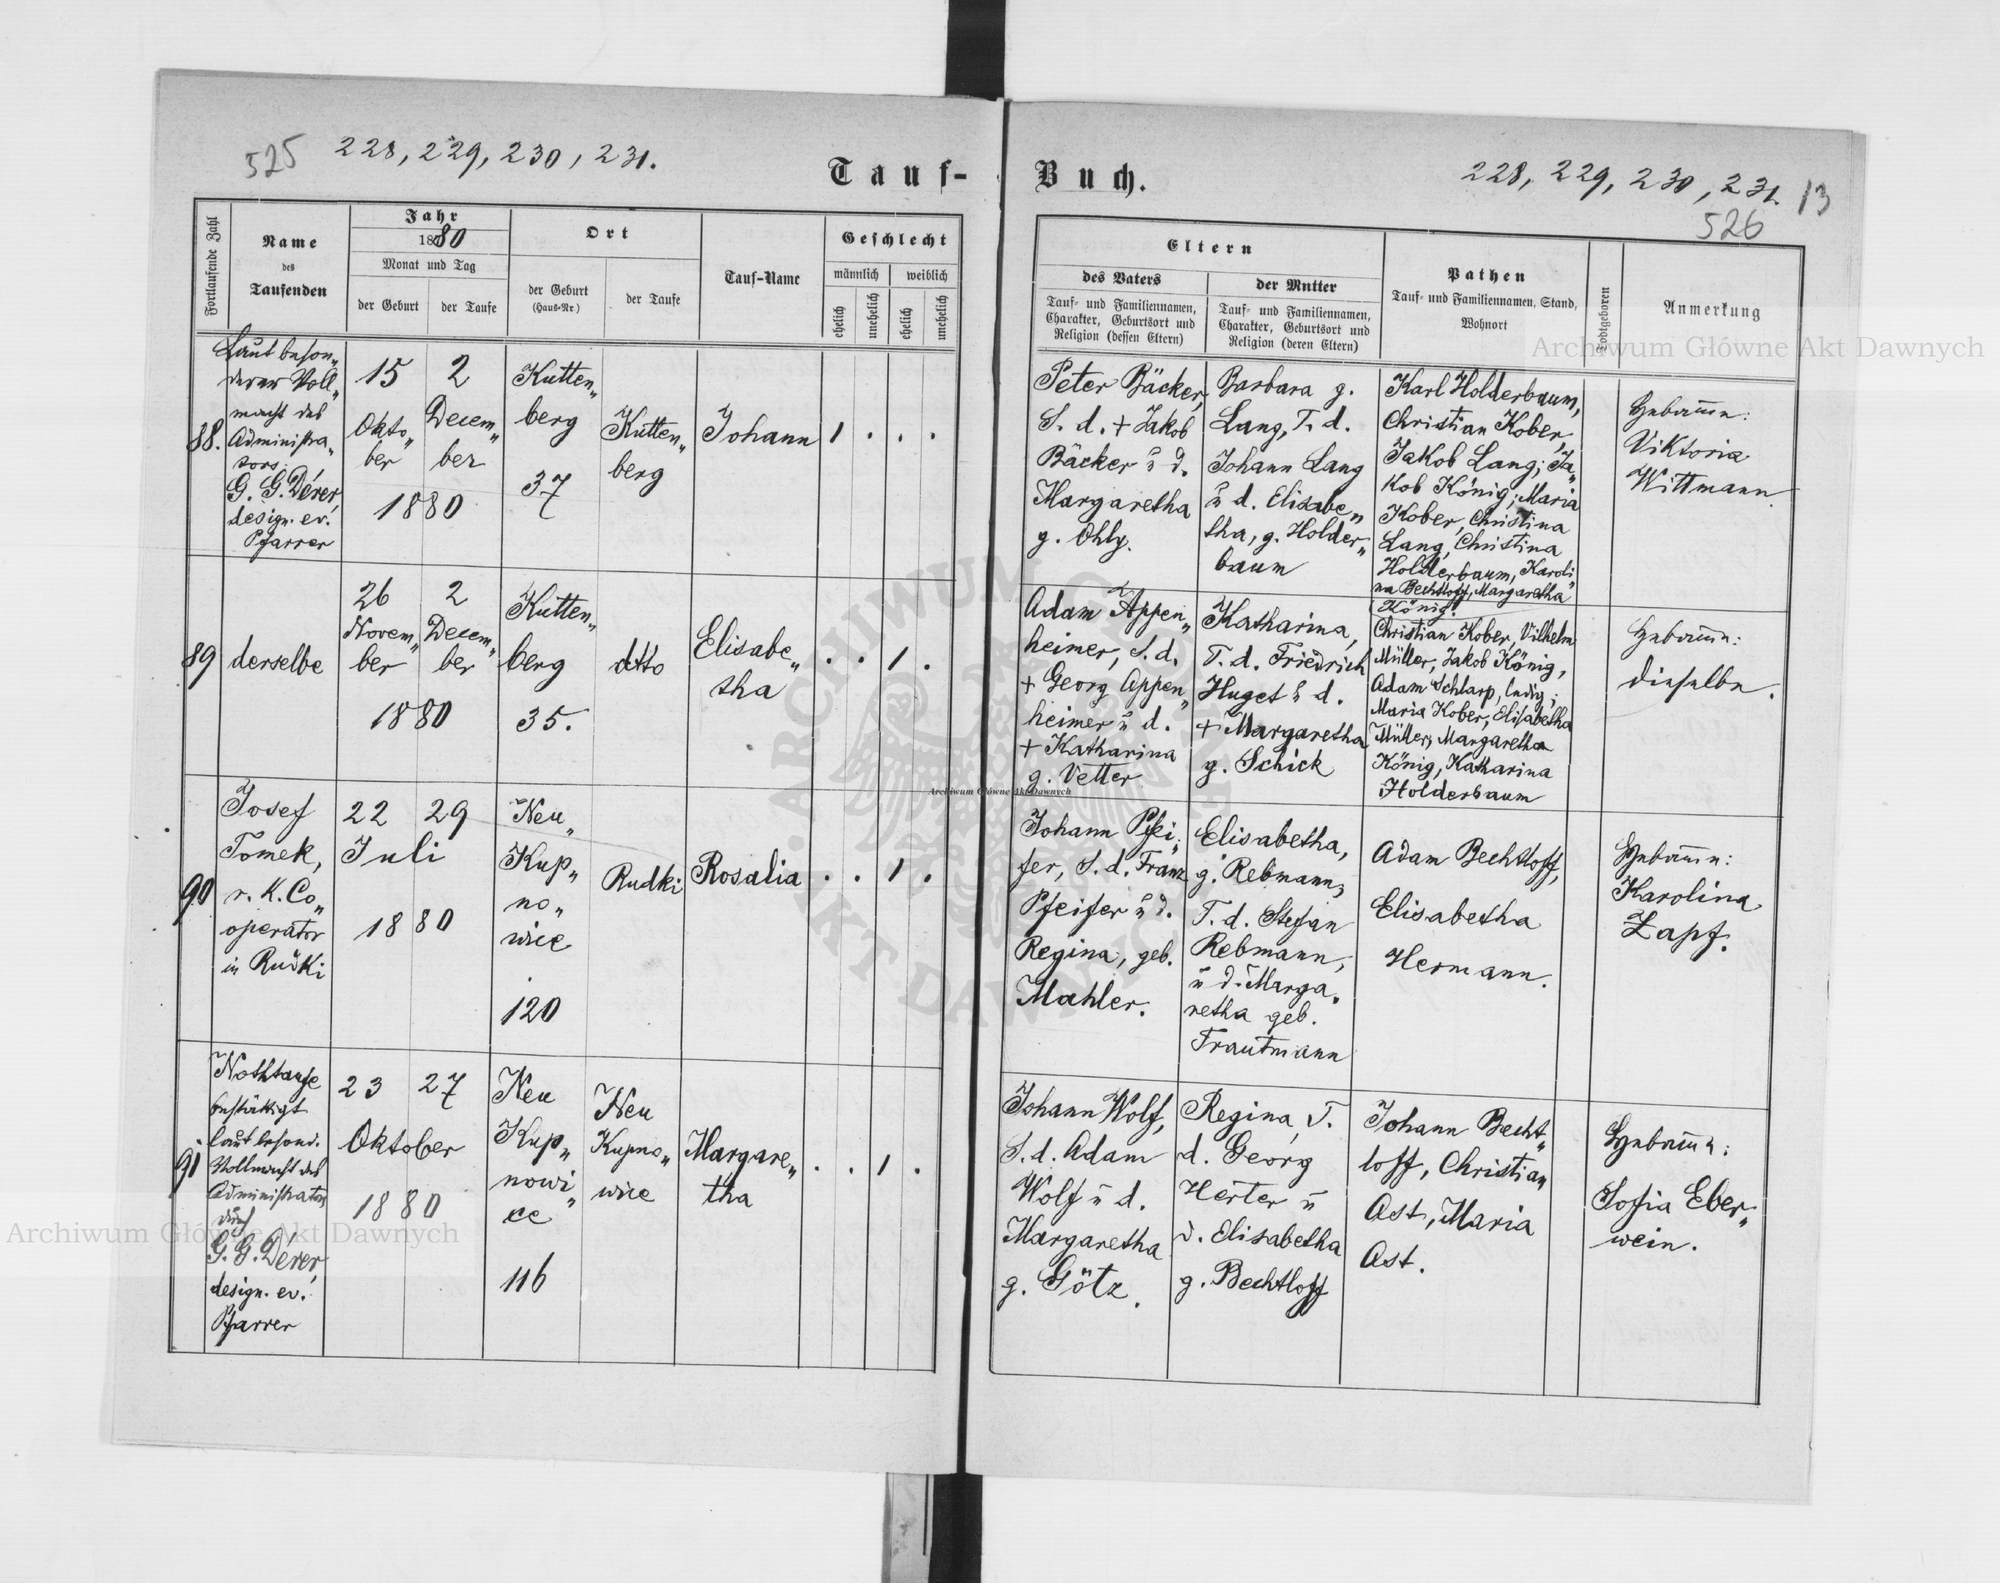 525
228, 229, 230, 231.
Tauf-
Buch.
228, 229, 230, 231.
13
526
Fortlaufende Zahl
Name
des
Taufenden
Jahr
1880
Monat und Tag
der Geburt
der Taufe
Ort
der Geburt
(Haus-Nr)
der Taufe
Tauf-Name
Geschlecht
männlich
weiblich
ehelich
unehelich
ehelich
unehelich
Eltern
des Vaters
Tauf- und Familiennamen,
Charakter, Geburtsort und
Religion (dessen Eltern)
der Mutter
Tauf- und Familiennamen,
Charakter, Geburtsort und
Religion (deren Eltern)
Pathen
Tauf- und Familiennamen, Stand,
Wohnort
Todtgeboren
Anmerkung
88.
Laut beson„
derer Voll„
macht des
Administra„
tors.
G. G. Dérer,
design. ev.
Pfarrer
15
Okto„
ber
2
Decem„
ber
1880
Kutten„
berg
37
Kutten„
berg
Johann
1 . . .
Peter Bäcker,
S. d. + Jakob
Bäcker ü d.
Margaretha
g. Ohly.
Barbara g.
Lang, T. d.
Johann Lang
ü d. Elisabe„
tha, g. Holder„
baum
Karl Holderbaum,
Christian Kober,
Jakob Lang; Ja„
kob König; Maria
Kober, Christina
Lang, Christina
Holderbaum, Karoli„
na Bechtloff, Margaretha
König.
Hebamme:
Viktoria
Wittmann
89
derselbe
26
Novem„
ber
2
Decem„
ber
1880
Kutten„
berg
35.
detto
Elisabe„
tha
. . 1 .
Adam Appen„
heimer, S. d.
+ Georg Appen„
heimer ü d.
+ Katharina
g. Vetter
Katharina,
T. d. Friedrich
Huget ü d.
+ Margaretha
g. Schick
Christian Kober, Vilhelm
Müller, Jakob König,
Adam Schlarp, ledig;
Maria Kober, Elisabetha
Müller, Margaretha
König, Katharina
Holderbaum
Hebamme:
dieselbe.
90
Josef
Tomek,
r. K. Co„
operator
in Rudki
22 29
Juli
1880
Neu„
Kup„
no„
wice
120
Rudki
Rosalia
. . 1 .
Johann Pfei„
fer, S. d. Franz
Pfeifer ü d.
Regina, geb.
Mahler.
Elisabetha,
g. Rebmann,
T. d. Stefan
Rebmann,
ü d. Marga„
retha geb.
Trautmann
Adam Bechtloff,
Elisabetha
Hermann.
Hebamme:
Karolina
Zapf.
91
Nothtaufe
bestättigt
laut besond.
Vollmacht des
Administrators
durch
G. G. Dérer,
design. ev.
Pfarrer
23 27
Oktober
1880
Neu
Kup„
nowi„
ce
116
Neu
Kupno„
wice
Margare„
tha
. . 1 .
Johann Wolf,
S. d. Adam
Wolf ü d.
Margaretha
g. Götz.
Regina, T.
d. Georg
Herter ü
d. Elisabetha
g. Bechtloff
Johann Becht„
loff, Christian
Ast, Maria
Ast.
Hebamme:
Sofia Eber„
wein.
Archiwum Główne Akt Dawnych
Archiwum Główne Akt Dawnych
Archiwum Główne Akt Dawnych